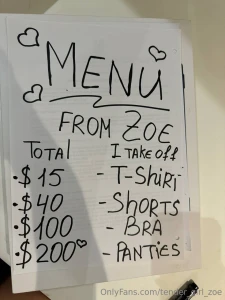 MENU
FROM ZOE
TOTAL I TAKE OFF
• $15 - T-SHIRT
• $40 - SHORTS
• $100 - BRA
• $200 - PANTIES
OnlyFans.com/tender_girl_zoe